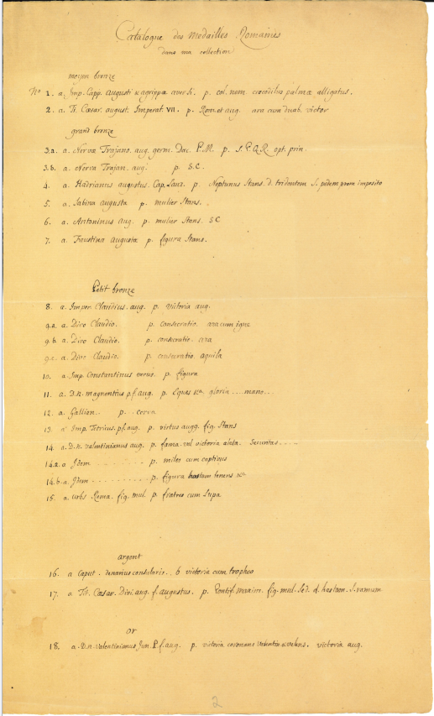 Catalogue des Medailles Romaines
dans ma collection
moyen bronze
No 1. a. Imp. Capp. augusti & agrippæ p. col. nem. crocodilus palmæ alligatus.
2. a. Ti. Cæsar. august. Imperat. VII. p. Rom. et aug. ara cum duab. victor
grand bronze
3.a. a. Nerva Trajano. aug. germ. Dac. P.M. p. S.P.Q.R. opt. prin.
3.b. a. Nerva Trajan. aug. p. S.C.
4. a. Hadrianus augustus. Cap. laur. p. Neptunus Stans. d. tridentem S. pedem proræ imposito
5. a. Sabina augusta p. mulier Stans.
6. a. Antoninus aug. p. mulier Stans. SC
7. a. Faustina augusta p. figura Stans.
Petit bronze
8. a. Claudius. aug. p. victoria aug.
9.a. a. Divo Claudio. p. consecratio. ara cum igne
9.b. a. Divo Claudio. p. consecratio. ara
9.c. a. Divo Claudio. p. consecratio. aquila
10. a. Imp. Constantinus p. figura
11. a. D.N. magnentius p.f. aug. p. Eques &c. gloria ... mano...
12. a. Gallien. p. cerva
13. a. Imp Tetricus. p.f. aug. p. virtus augg. fig. Stans
14. a. D.N. valentinianus aug. p. fama vel victoria alata. Securitas....
14.a. a Item - - - - - p. miles cum captivus
14.b. a. Item - - - - - p. figura hastam tenens &c
15. a. urbs Roma. fig. mul p. fratres cum Lupa
argent
16. a Caput. denarius consularis. b victoria cum tropheo
17. a. Tib. Cæsar. Divi. aug. f. augustus. p. Pontif. maxim. fig. mul. sed. d. hastam. S. ramum
or
18. a. D.N. valentinianus Jun. P.f. aug. p. victoria coronans. victoria aug.
2